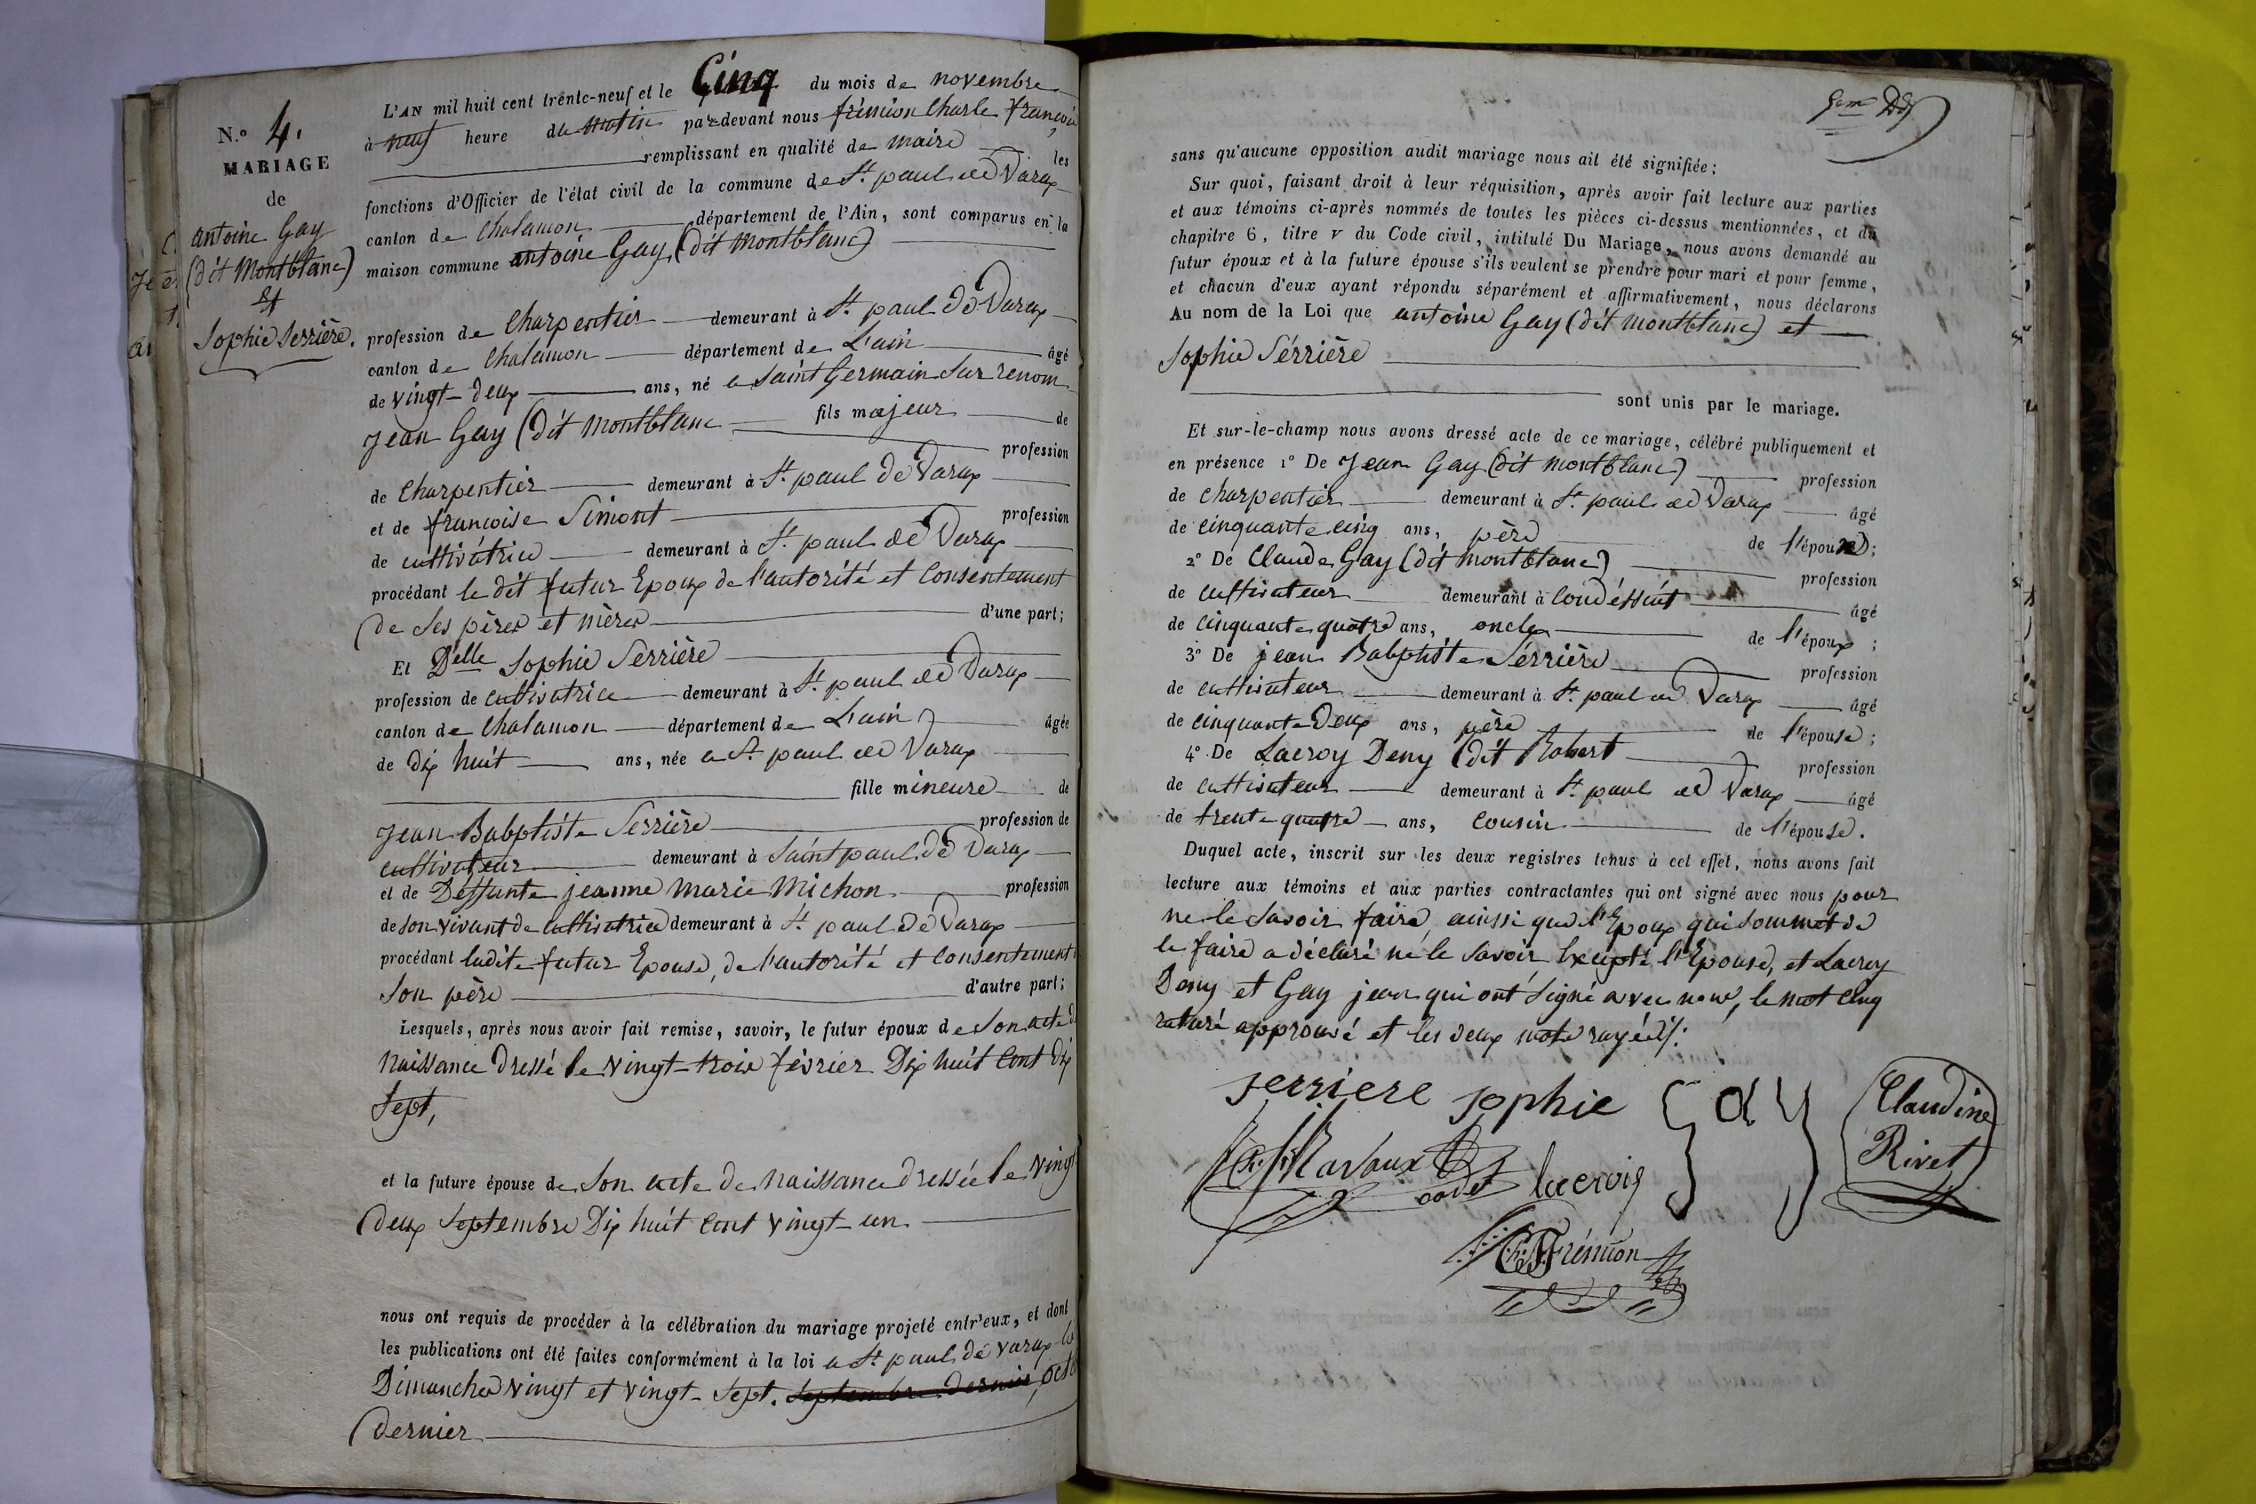 N.° 4.
MARIAGE
de
antoine Gay
(dit Montblanc)
Et
Sophie Serrière.
L'AN mil huit cent trente-neuf et le Cinq du mois de novembre
à neuf heure du matin par-devant nous frémion Charle françois
remplissant en qualité de maire les
fonctions d'Officier de l'état civil de la commune de St. paul de Varax
canton de Chalamon département de l'Ain, sont comparus en la
maison commune antoine Gay (dit Montblanc)
profession de Charpentier demeurant à St. paul De Varax
canton de Chalamon département de L'ain âgé
de vingt-deux ans, né a Saint Germain Sur renom
fils majeur de
Jean Gay (dit Montblanc profession
de Charpentier demeurant à St. paul De Varax
et de françoise Simont profession
de cultivatrice demeurant à St. paul de Varax
procédant le dit futur Epoux de l'autorité et Consentement
de Ses pères et mères d'une part;
Et Delle Sophie Serrière
profession de cultivatrice demeurant à St. paul de Varax
canton de Chalamon département de L'ain âgée
de dix huit ans, née a St. paul de Varax
fille mineure de
Jean Babptiste Serrière profession de
cultivateur demeurant à Saint paul de Varax
et de Deffunte jeanne Marie Michon profession
de son vivant de cultivatrice demeurant à St. paul De Varax
procédant ladite futur Epouse, de l'autorité et Consentement
Son père d'autre part;
Lesquels, après nous avoir fait remise, savoir, le futur époux de Son acte de
Naissance dressé le vingt-trois février Dix huit Cent dix
Sept,
et la future épouse de Son acte de Naissance dressée le vingt
deux Septembre Dix huit Cent vingt-un
nous ont requis de procéder à la célébration du mariage projeté entr'eux, et dont
les publications ont été faites conformément à la loi a St. paul de Varax les
Dimanches vingt et vingt-Sept. Septembre dernier, octo
dernier
sans qu'aucune opposition audit mariage nous ait été signifiée;
Sur quoi, faisant droit à leur réquisition, après avoir fait lecture aux parties
et aux témoins ci-après nommés de toutes les pièces ci-dessus mentionnées, et du
chapitre 6, titre v du Code civil, intitulé Du Mariage, nous avons demandé au
futur époux et à la future épouse s'ils veulent se prendre pour mari et pour femme,
et chacun d'eux ayant répondu séparément et affirmativement, nous déclarons
Au nom de la Loi que antoine Gay (dit montblanc) et
Sophie Sérrière
sont unis par le mariage.
Et sur-le-champ nous avons dressé acte de ce mariage, célébré publiquement et
en présence 1° De Jean Gay (dit montblanc) profession
de charpentier demeurant à St. paul de Varax âgé
de cinquante cinq ans, père de l'époux;
2° De Claude Gay (dit Montblanc) profession
de cultivateur demeurant à Condéssiat âgé
de cinquante quatre ans, oncle de l'époux;
3° De jean Babptiste Sérrière profession
de cultivateur demeurant à St. paul de Varax âgé
de cinquante Deux ans, père de l'épouse;
4° De Lacroy Deny (dit Robert profession
de cultivateur demeurant à St. paul de Varax âgé
de trente quatre ans, cousin de l'épouse.
Duquel acte, inscrit sur les deux registres tenus à cet effet, nous avons fait
lecture aux témoins et aux parties contractantes qui ont signé avec nous pour
ne le Savoir faire, ainssi que l'Epoux qui Sommet de
le faire a déclaré ne le Savoir Excepté l'Epouse, et Lacroy
Deny et Gay jean qui ont Signé avec nous, le mot Cinq
raturé approuvé et les deux mots rayés/:
serriere sophie Gay Claudine
Rivet
Ravoux
cadet lacroix
Ch. F. Frémion